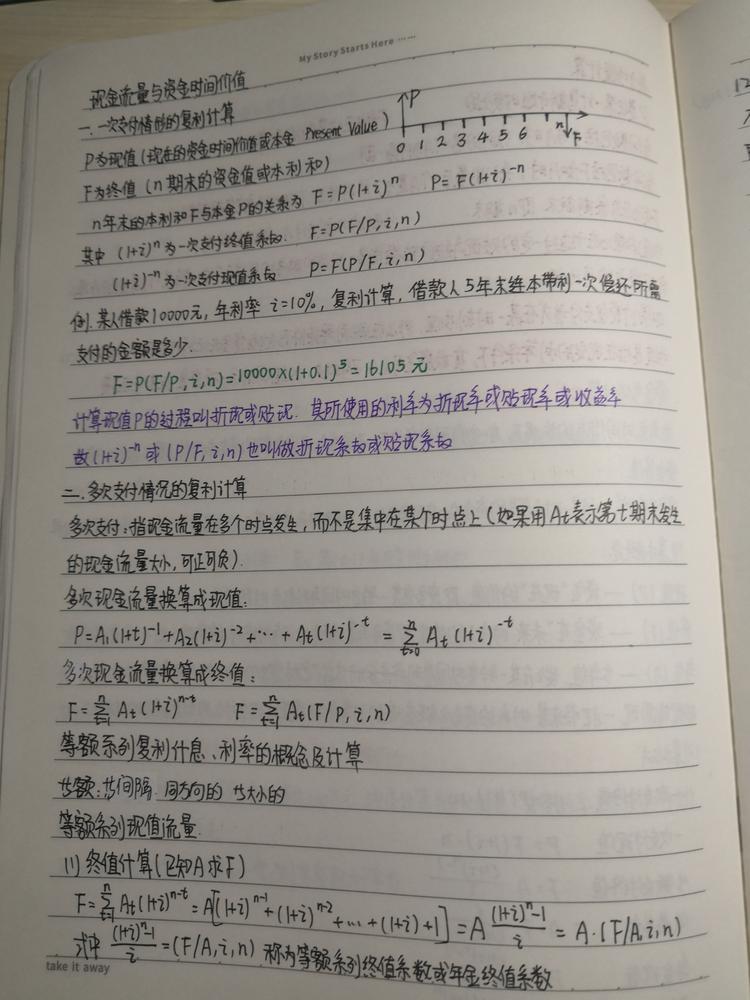 My Story Starts Here ……
现金流量与资金时间价值
一.一次支付情形的复利计算
P为现值(现在的资金时间价值或本金 Present Value)
P
0 1 2 3 4 5 6 n
F
F为终值(n期末的资金值或本利和)
n年末的本利和F与本金P的关系为 F=P(1+i)^n P=F(1+i)^-n
其中 (1+i)^n为一次支付终值系数. F=P(F/P,i,n)
(1+i)^-n为一次支付现值系数 P=F(P/F,i,n)
例.某人借款10000元,年利率 i=10%,复利计算,借款人5年末连本带利一次偿还所需
支付的金额是多少.
F=P(F/P,i,n)=10000×(1+0.1)^5=16105元
计算现值P的过程叫折现或贴现.其所使用的利率为折现率或贴现率或收益率
故(1+i)^-n或(P/F,i,n)也叫做折现系数或贴现系数
二.多次支付情况的复利计算
多次支付:指现金流量在多个时点发生,而不是集中在某个时点上(如果用At表示第t期末发生
的现金流量大小,可正可负).
多次现金流量换算成现值:
P=A1(1+t)^-1+A2(1+i)^-2+…+At(1+i)^-t=∑(t=0→n)At(1+i)^-t
多次现金流量换算成终值:
F=∑(t=1→n)At(1+i)^n-t F=∑(t=1→n)At(F/P,i,n)
等额系列复利计息、利率的概念及计算
等额:等间隔.同方向的 等大小的
等额系列现值流量.
(1)终值计算(已知A求F)
F=∑(t=1→n)At(1+i)^n-t=A[(1+i)^n-1+(1+i)^n-2+…+(1+i)+1]=A((1+i)^n-1)/i=A·(F/A,i,n)
式中((1+i)^n-1)/i=(F/A,i,n) 称为等额系列终值系数或年金终值系数
take it away